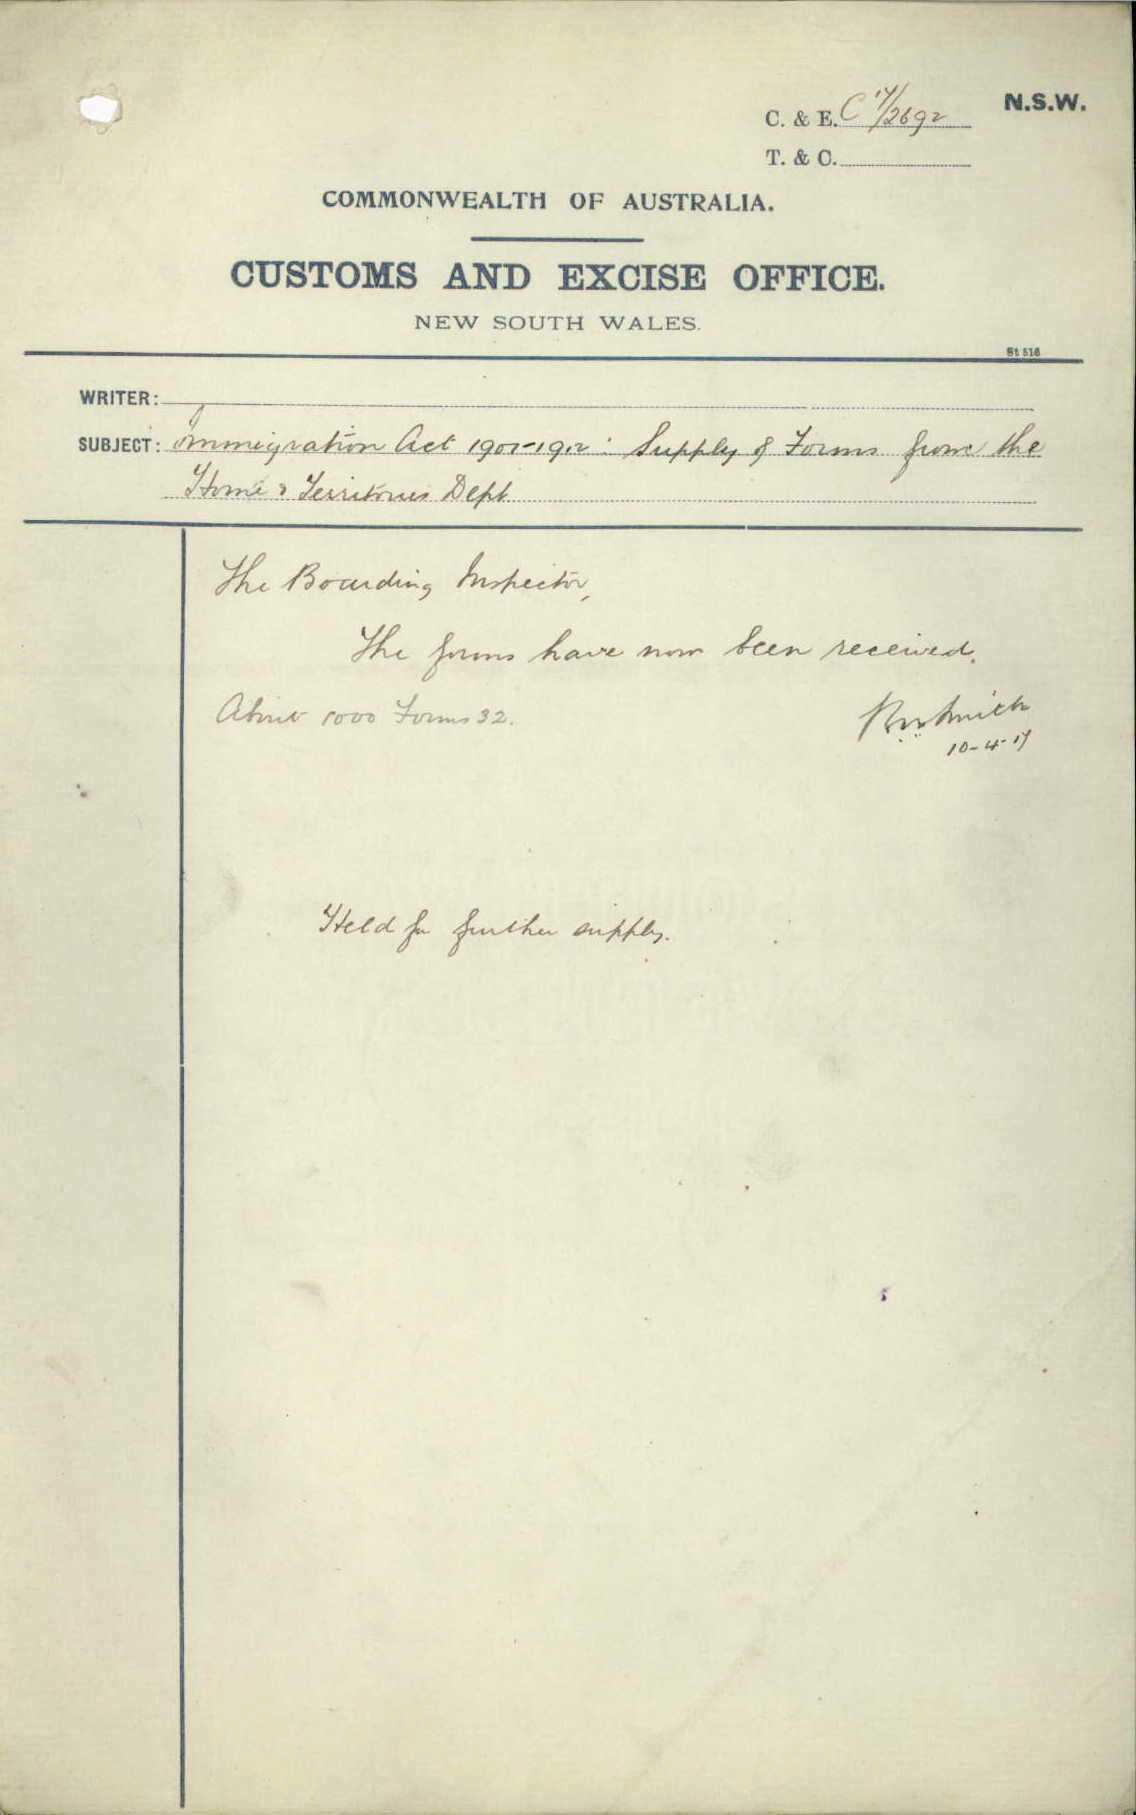 N.S.W.
C. & E. C 17/2692
T. & C.
COMMONWEALTH OF AUSTRALIA.
CUSTOMS AND EXCISE OFFICE.
NEW SOUTH WALES.
St 516
WRITER:
SUBJECT: Immigration Act 1901-1912: Supply of Forms from the
Home & Territories Dept.
The Boarding Inspector,
The forms have now been received.
About 1000 Forms 32.
10-4-17
Held for further supply.